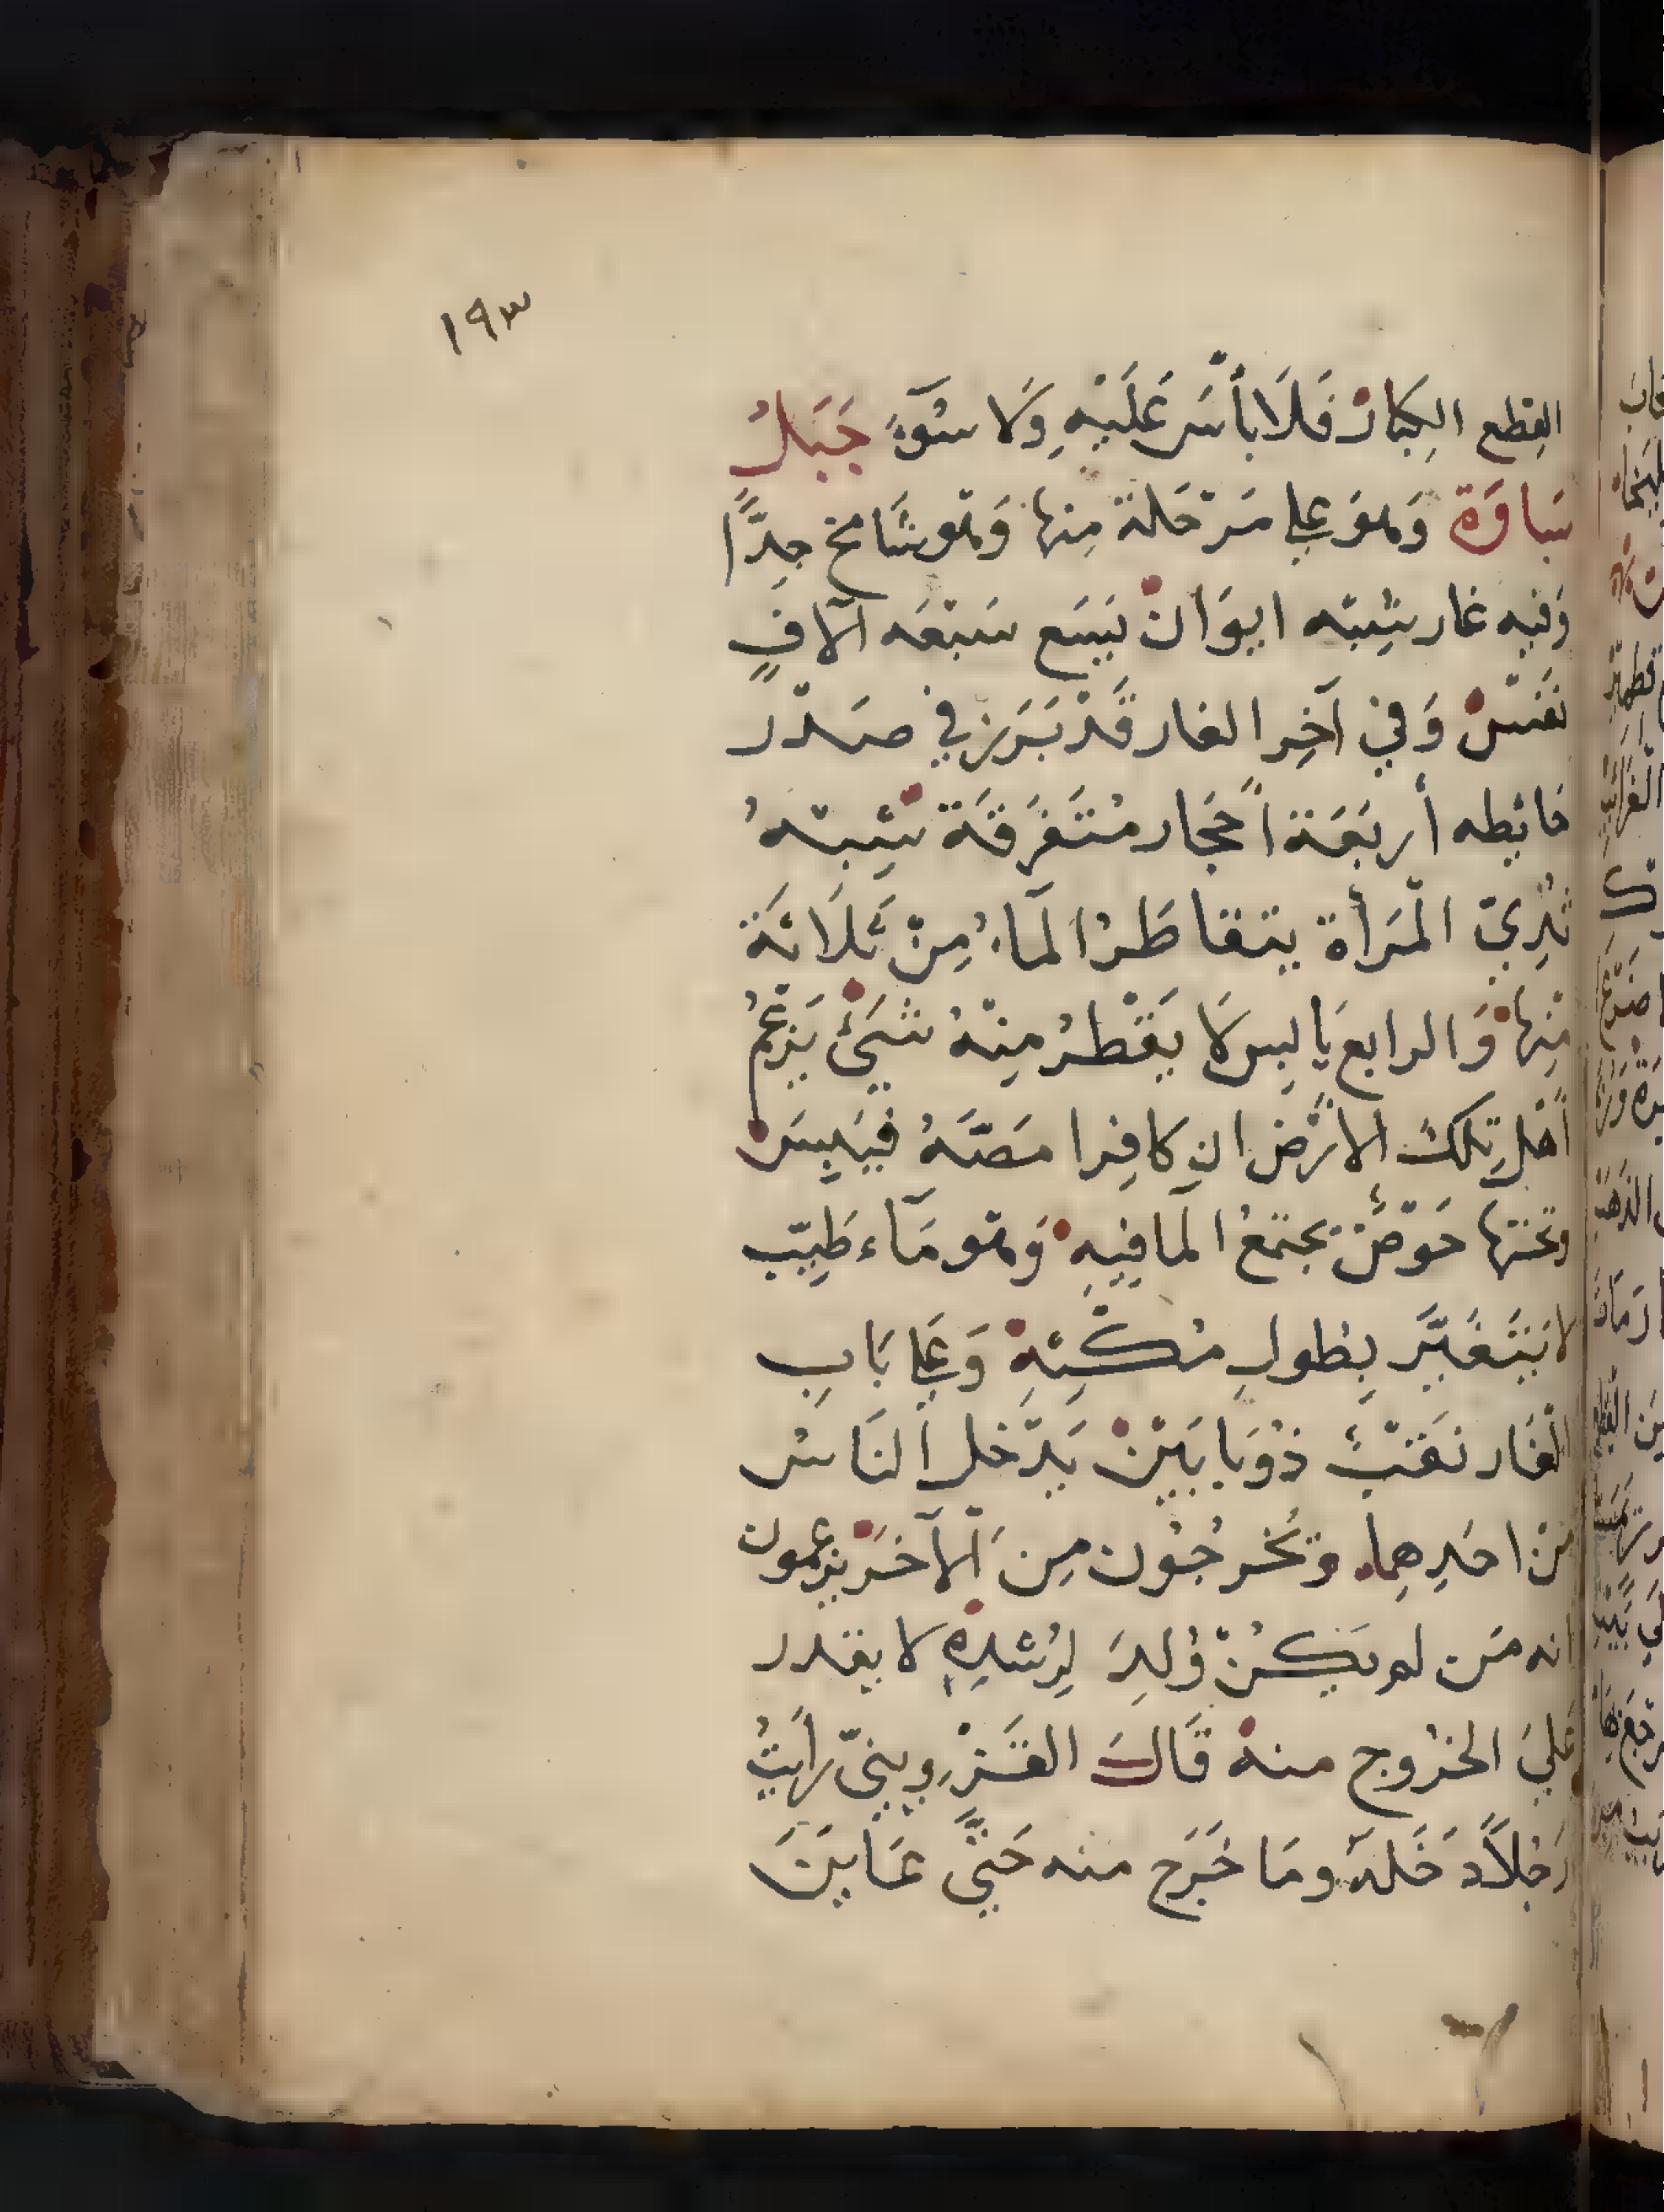 ١٩٣
القِطع الكِبَارْ فَلَا بأسَ عَلَيْهِ وَلَا سُوٓءَ جَبَلُ
سَاوَة وَهوَ علي مَرْحَلة مِنها وَهو شَامخ جِدًّا
وَفيه غار يشِبْه ايوَانْ يَسَع سَبْعَه آلافٍ
نَفسْ وَفي آخِر الغار قَدْ بَرَز في صَدْر
حَائطه أربَعَة أحْجار مُتَفَرقَة تشِبهُ
ثَدِيّ الْمَرأة يتقاطَرُ المآءُ مِنْ ثَلَاثَة
مِنها وَالرابع يَابِس لَا يَقْطرُ مِنْهُ شَيْءٌ يَزعُمُ
أهْل تِلكَ الارْض ان كافِرا مَصَّهُ فيَبِسَ
وتحتها حَوْضٌ يجتَمعُ المآ فِيهِ وَهو مَآء طَيِّب
لا يَتَغَيَّر بِطولِ مُكْثِهِ وَعَلي بَابِ
الْغَار نَقبٌ ذُو بابَيْن يَدْخل النَاسُ
مِن احَدِهِما وَيخرجُون مِنَ الْآخَرْ يزعمون
انه مَن لم يَكُنْ وُلِدَ لِرُشدِهِ لا يقدر
عَليَ الخرُوج منهْ قَالَ القَزْوِينيّ رأيتُ
رَجُلاً دَخَلهَ ومَا خَرَج منه حَتَّي عَايَنَ